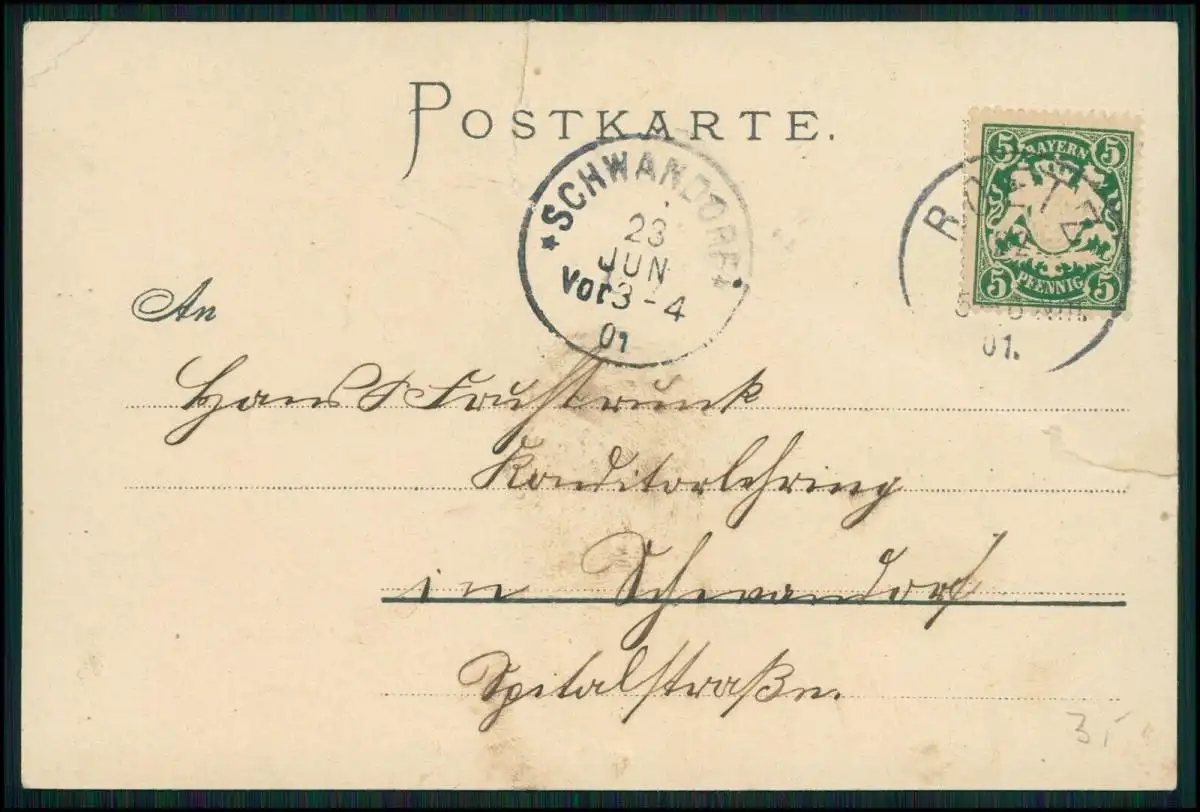 POSTKARTE.
SCHWANDORF
23
JUN
Vor 3-4
01
5 BAYERN 5
5 PFENNIG 5
01.
An
Hans
Konditorlehrling
in Schwandorf
Spitalstraße.
3,-